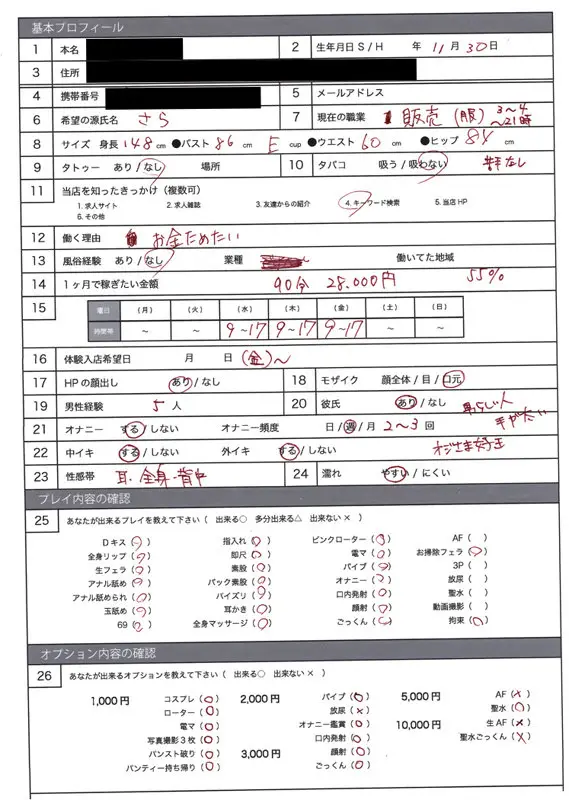 基本プロフィール
1 本名 2 生年月日 S / H 年 11 月 30 日
3 住所
4 携帯番号 5 メールアドレス
6 希望の源氏名 さら 7 現在の職業 販売 (服) 3〜4 〜21時
8 サイズ 身長 148 cm ●バスト 86 cm E cup ●ウエスト 60 cm ●ヒップ 84 cm
9 タトゥー あり / なし 場所 10 タバコ 吸う / 吸わない
11 当店を知ったきっかけ(複数可)
1. 求人サイト 2. 求人雑誌 3. 友達からの紹介 4. キーワード検索 5. 当店 HP
6. その他
12 働く理由 お金ためたい
13 風俗経験 あり / なし 業種 働いてた地域
14 1ヶ月で稼ぎたい金額 90分 28.000円 55%
15 曜日 (月) (火) (水) (木) (金) (土) (日)
時間帯 〜 〜 9〜17 9〜17 9〜17 〜 〜
16 体験入店希望日 月 日 (金)〜
17 HPの顔出し あり / なし 18 モザイク 顔全体 / 目 / 口元
19 男性経験 5 人 20 彼氏 あり / なし
21 オナニー する / しない オナニー頻度 日 / 週 / 月 2〜3 回
22 中イキ する / しない 外イキ する / しない
23 性感帯 耳・全身・背中 24 濡れ やすい / にくい
プレイ内容の確認
25 あなたが出来るプレイを教えて下さい( 出来る○ 多分出来る△ 出来ない× )
Dキス (○) 指入れ (○) ピンクローター (○) AF ( )
全身リップ (○) 即尺 (○) 電マ (○) お掃除フェラ (○)
生フェラ (○) 素股 (○) バイブ (○) 3P ( )
アナル舐め (○) バック素股 (○) オナニー (○) 放尿 ( )
アナル舐められ (○) パイズリ (○) 口内発射 (○) 聖水 ( )
玉舐め (○) 耳かき (○) 顔射 (○) 動画撮影 ( )
69 (○) 全身マッサージ (○) ごっくん (○) 拘束 (○)
オプション内容の確認
26 あなたが出来るオプションを教えて下さい( 出来る○ 出来ない× )
1,000円 コスプレ (○) 2,000円 バイブ (○) 5,000円 AF (×)
ローター (○) 放尿 (×) 聖水 (○)
電マ (○) オナニー鑑賞 (○) 10,000円 生AF (×)
写真撮影3枚 (○) 口内発射 (○) 聖水ごっくん (×)
パンスト破り (○) 3,000円 顔射 (○)
パンティー持ち帰り (○) ごっくん (○)